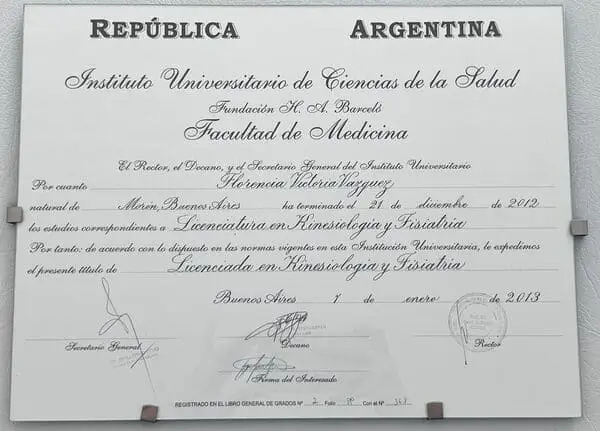 REPÚBLICA ARGENTINA
Instituto Universitario de Ciencias de la Salud
Fundación H. A. Barceló
Facultad de Medicina
El Rector, el Decano, y el Secretario General del Instituto Universitario
Por cuanto Florencia Victoria Vazquez
natural de Morón, Buenos Aires ha terminado el 21 de diciembre de 2012
los estudios correspondientes a Licenciatura en Kinesiología y Fisiatría
Por tanto: de acuerdo con lo dispuesto en las normas vigentes en esta Institución Universitaria, le expedimos
el presente título de Licenciada en Kinesiología y Fisiatría
Buenos Aires 7 de enero de 2013
Secretario General Decano Rector
Firma del Interesado
REGISTRADO EN EL LIBRO GENERAL DE GRADOS Nº 2 Folio Con el Nº